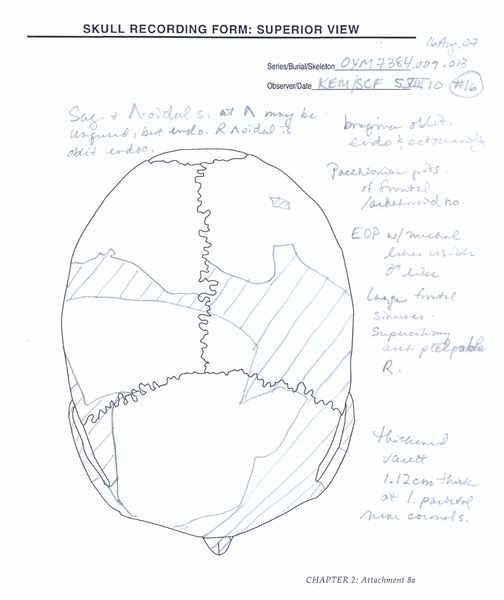 SKULL RECORDING FORM: SUPERIOR VIEW
16 Aug. 07
Series/Burial/Skeleton OYM7384.009.013
Observer/Date KEM/SCF 5VIII10 #16
Sag. + Λoidal s. at Λ may be
unfused, but endo. R Λoidal is
oblit endoc.
bregma oblit.
endo & ectocranially
Pacchionian pits
of frontal
/arachnoid no.
EOP w/ nuchal
lines visible
Large frontal
sinuses.
Supercilliary
arch
R.
thickened
vault
1.12cm thick
at l. parietal
near coronals.
CHAPTER 2: Attachment 8a